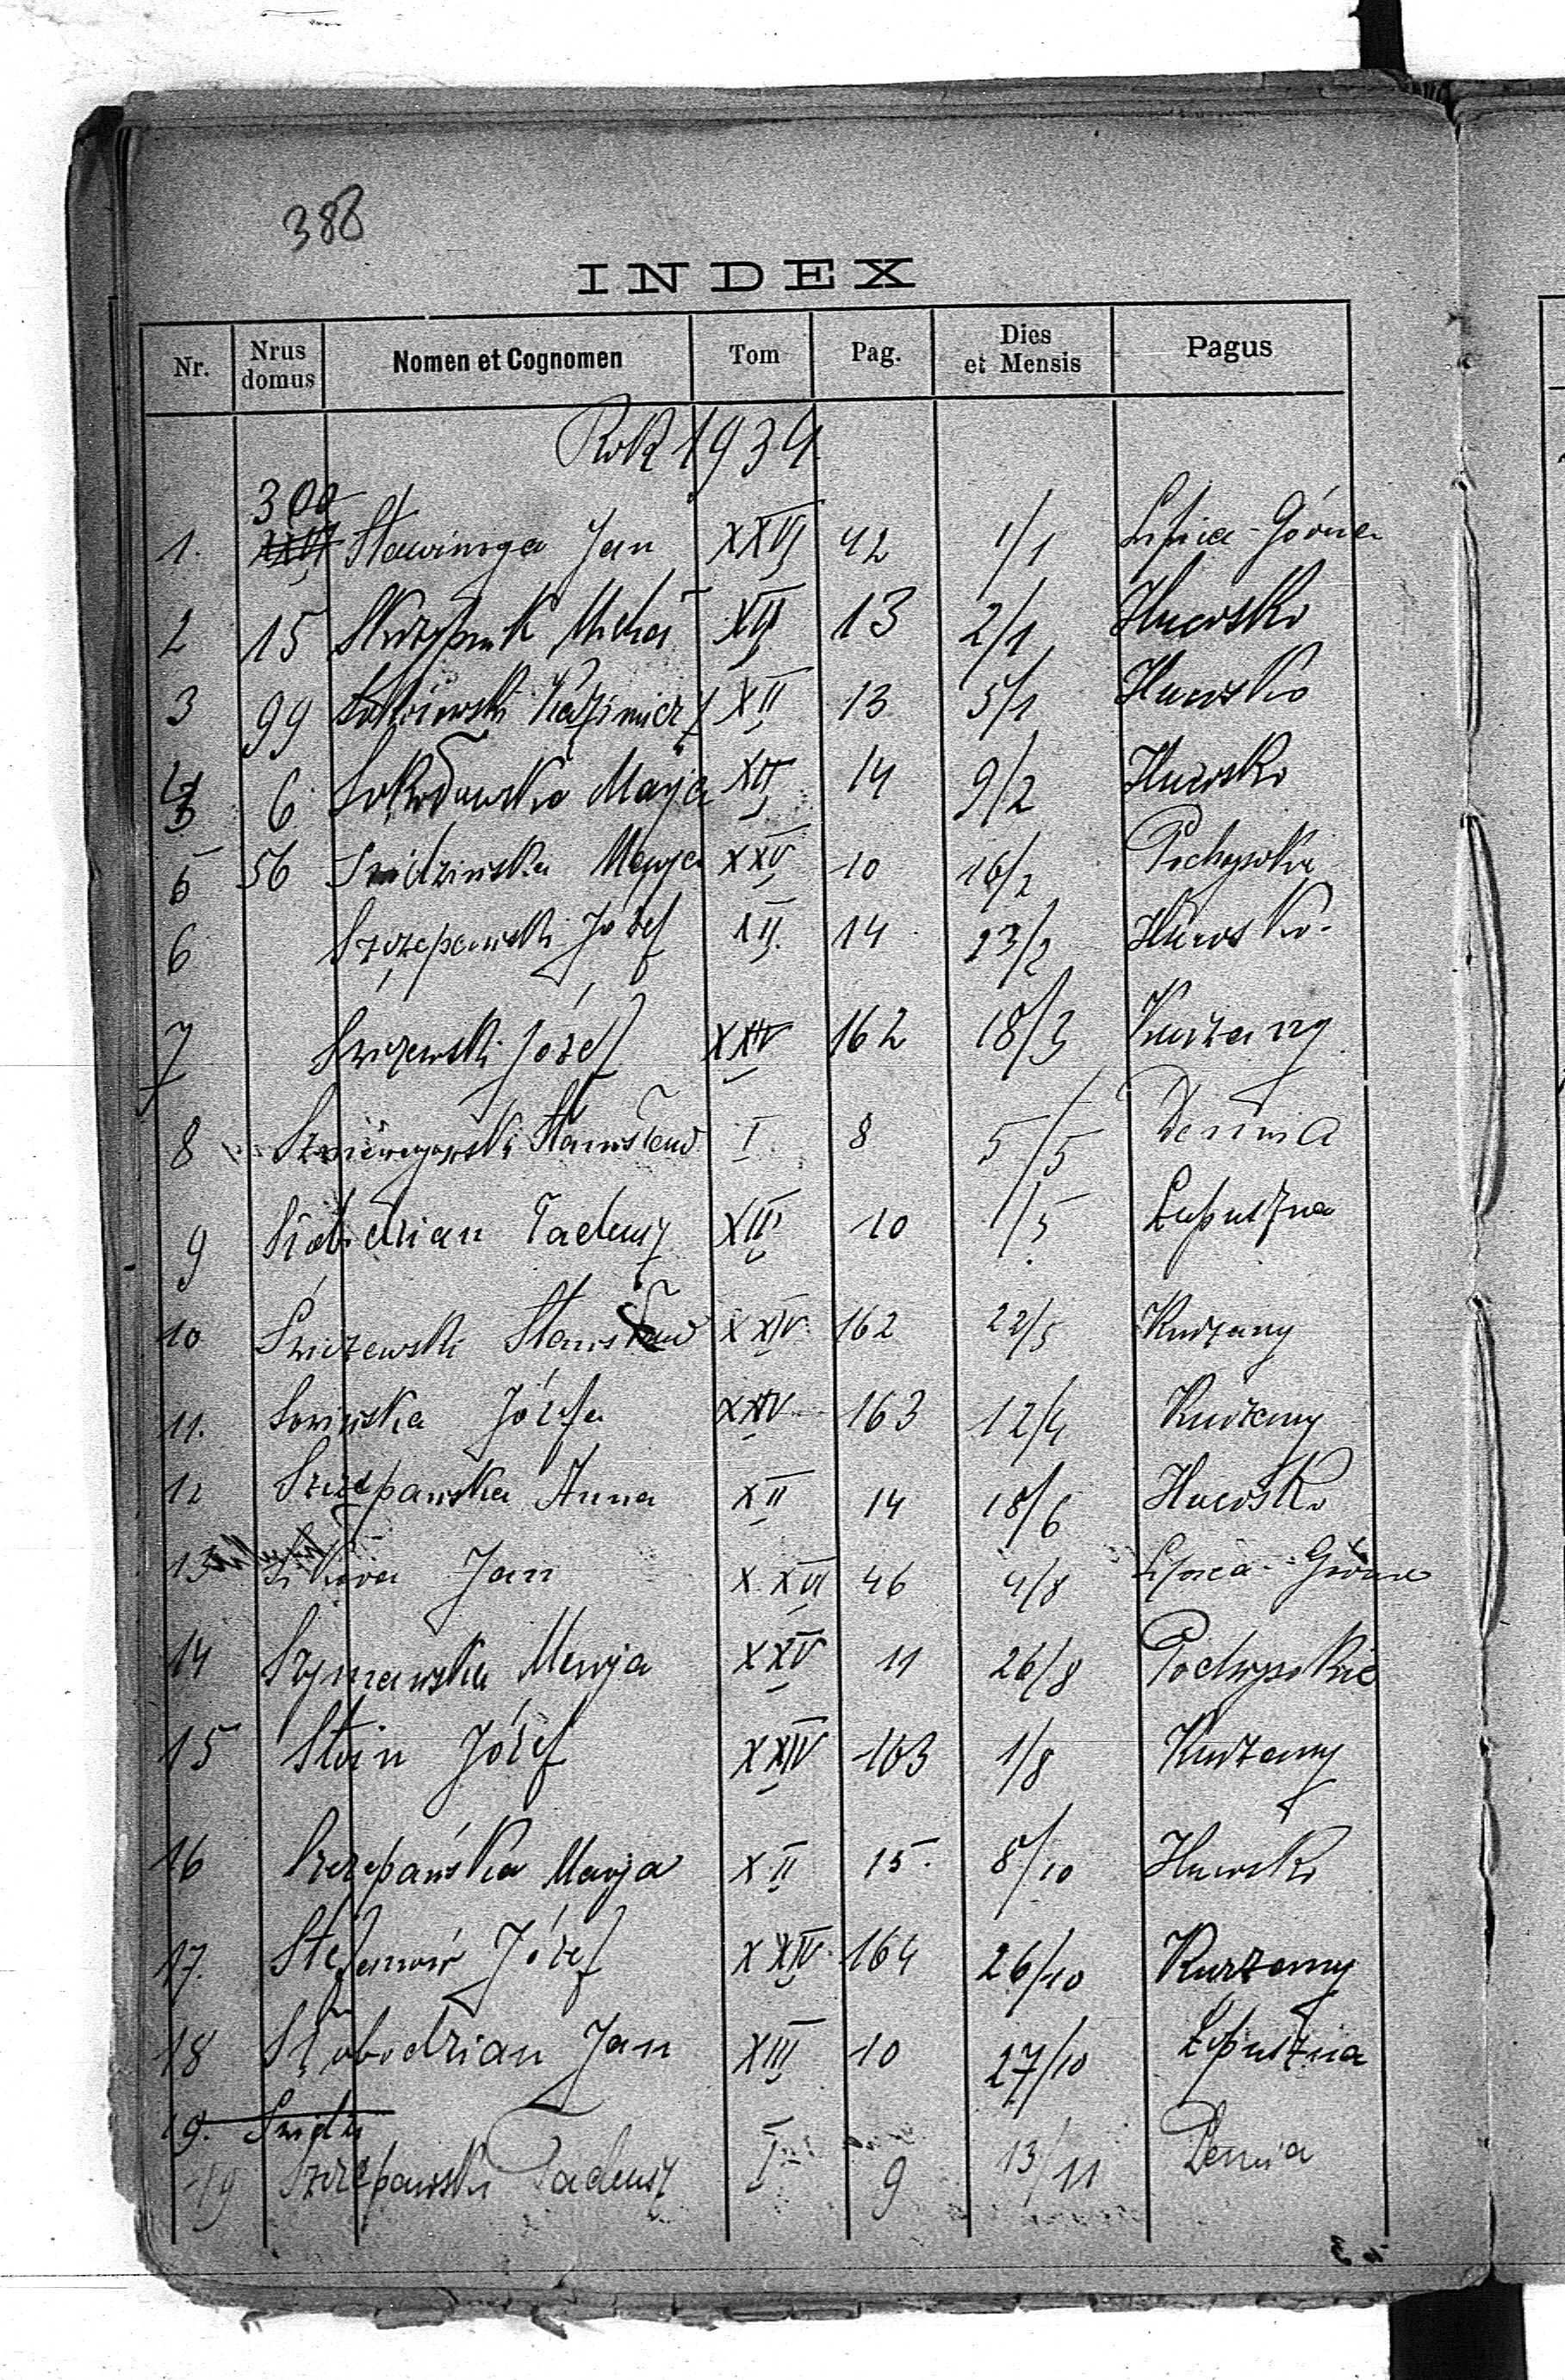 388
INDEX
Nr. Nrus domus Nomen et Cognomen Tom Pag. Dies et Mensis Pagus
Rok 1934
300
1. XXVI Jan XXVI 42 1/1 Lipica-Górna
2 15 Skrzypnik Michał XII 13 2/1 Hucisko
3 99 Kazimierz XII 13 5/1 Hucisko
4 6 Sokołowska Marja XII 14 9/2 Hucisko
5 56 Marja XXV 10 16/2
6 Szczepański Józef XII. 14 23/2 Hucisko
7 Józef XXIV 162 18/3 Kurzany
8 Stanisław I 8 5/5 Demnia
9 Słobodzian Tadeusz XIII 10 1/5 Łopuszna
10 Stanisław XXIV 162 22/5 Kurzany
11. Sowińska Józefa XXIV 163 12/4 Kurzany
12 Szczepańska Anna XII 14 18/6 Hucisko
13 Sikora Jan XXVI 46 4/8 Lipica-Górna
14 Szymańska Marja XXV 11 26/8 Podwysokie
15 Stein Józef XXIV 163 1/8 Kurzany
16 Szczepańska Marja XII 15. 8/10 Hucisko
17. Stefanów Józef XXIV 164 26/10 Kurzany
18 Słobodzian Jan XIII 10 27/10 Łopuszna
19.
19 Szczepański Tadeusz I 9 13/11 Demnia